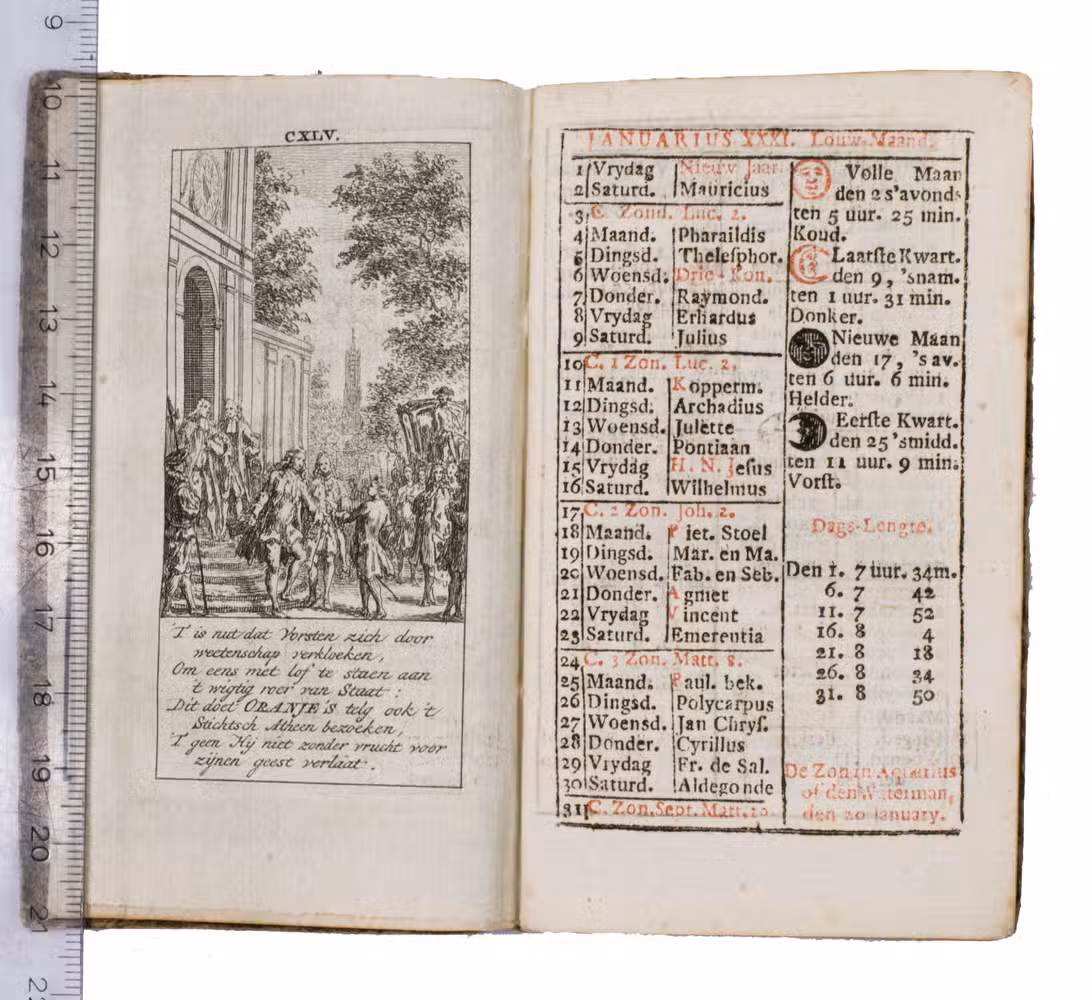 CXLV.
'T is nut dat Vorsten zich door
weetenschap verkloeken,
Om eens met lof te staen aan
't wigtig roer van Staat :
Dit doet ORANJE'S telg ook 't
Stichtsch Atheen bezoeken,
'T geen Hij niet zonder vrucht voor
zijnen geest verlaat.
JANUARIUS XXXI. Louw-Maand.
1 Vrydag Nieuw Jaar.
2 Saturd. Mauricius
3 C. Zond. Luc. 2.
4 Maand. Pharaildis
5 Dingsd. Thelesphor.
6 Woensd. Drie-Kon.
7 Donder. Raymond.
8 Vrydag Erhardus
9 Saturd. Julius
10 C. 1 Zon. Luc. 2.
11 Maand. Kopperm.
12 Dingsd. Archadius
13 Woensd. Julette
14 Donder. Pontiaan
15 Vrydag H. N. Jesus
16 Saturd. Wilhelmus
17 C. 2 Zon. Joh. 2.
18 Maand. Piet. Stoel
19 Dingsd. Mar. en Ma.
20 Woensd. Fab. en Seb.
21 Donder. Agniet
22 Vrydag Vincent
23 Saturd. Emerentia
24 C. 3 Zon. Matt. 8.
25 Maand. Paul. bek.
26 Dingsd. Polycarpus
27 Woensd. Jan Chryſ.
28 Donder. Cyrillus
29 Vrydag Fr. de Sal.
30 Saturd. Aldegonde
31 C. Zon. Sept. Matt. 20.
Volle Maan
den 2 s'avonds
ten 5 uur. 25 min.
Koud.
Laatſte Kwart.
den 9, 'snam.
ten 1 uur. 31 min.
Donker.
Nieuwe Maan
den 17, 's av.
ten 6 uur. 6 min.
Helder.
Eerſte Kwart.
den 25 'smidd.
ten 11 uur. 9 min.
Vorſt.
Dags-Lengte.
Den 1. 7 uur. 34m.
6. 7 42
11. 7 52
16. 8 4
21. 8 18
26. 8 34
31. 8 50
De Zon in Aquarius
of den Waterman,
den 20 January.
9
10
11
12
13
14
15
16
17
18
19
20
21